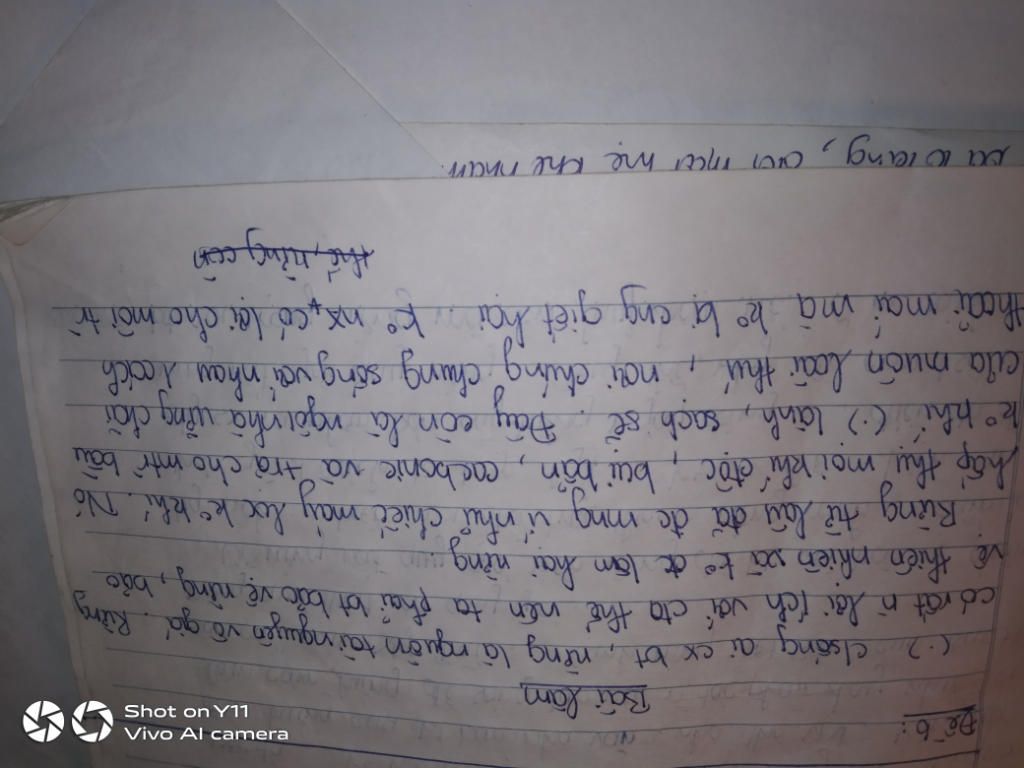 Đề 6:
Bài làm
(.) c/sống ai cx bt, rừng là nguồn tài nguyên vô giá. Rừng
có rất n lợi ích với cta thế nên ta phải bt bảo vệ rừng, bảo
vệ thiên nhiên và k° đc làm hại rừng.
Rừng từ lâu đã đc mng ví như chiếc máy lọc k° khí. Nó
hấp thụ mọi khí độc, bụi bẩn, cacbonic và trả cho mtr bầu
k° khí (.) lành, sạch sẽ. Đây còn là ngôi nhà vững chãi
của muôn loài thú, nơi chúng chung sống với nhau 1 cách
thoải mái mà k° bị cng giết hại. k° nx, có lợi cho môi tr
thế, rừng còn
, cơi mẹ khẽ
Shot on Y11
Vivo AI camera